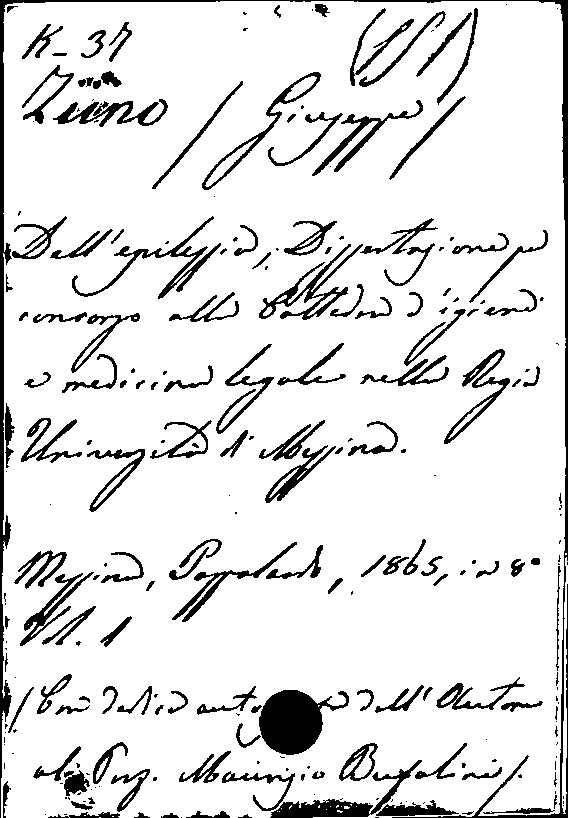 K-37 (SS1)
Ziino / Giuseppe /
Dell'epilessia, Dissertazione pel
concorso alla Cattedra d'igiene
e medicina legale nella Regia
Università di Messina.
Messina, 1865, in 8°
Vol. 1
/ Con dedica dell'Autore
al Maurizio Bufalini /.